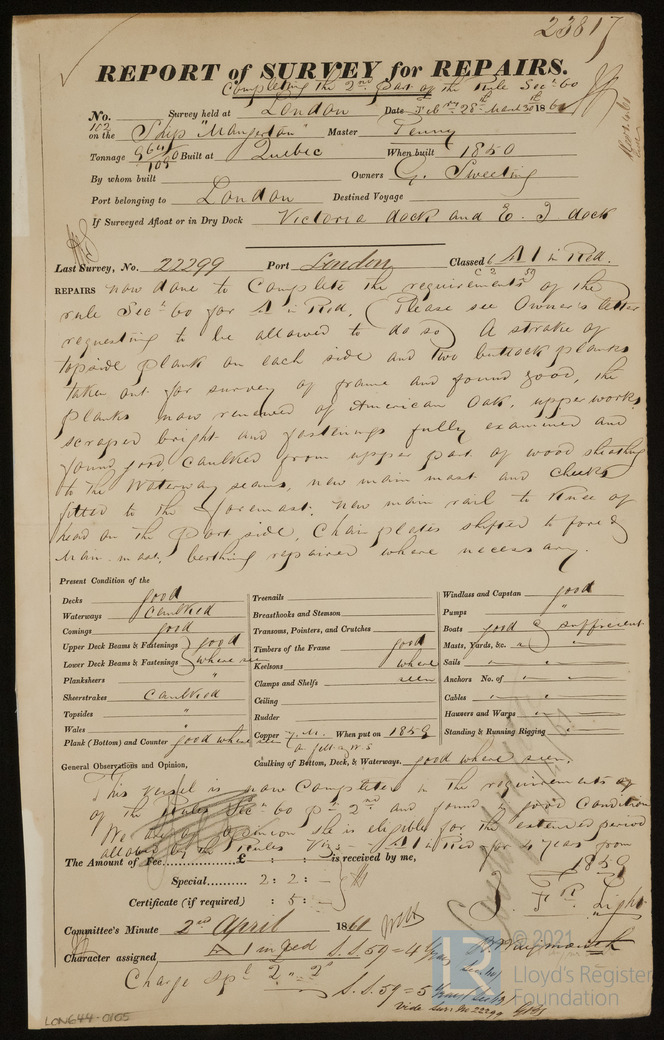 23817
REPORT of SURVEY for REPAIRS.
Completing the 2nd part of the Rule Secn 60
No. 102 Survey held at London Date Feby 28th March 30th 1861
on the Ship "Mangerton" Master Penny
Tonnage Built at Quebec When built 1850
By whom built Owners G. Sweeting
Port belonging to London Destined Voyage
If Surveyed Afloat or in Dry Dock Victoria dock and dock
Last Survey, No. 22299 Port London Classed A1 in Red.
REPAIRS now done to Complete the requirements of the
rule Secn 60 for A1 in Red, (Please see Owner's letter
requesting to be allowed to do so) A strake of
topside plank on each side and two buttock planks
taken out for survey of frame and found good, the
planks now renewed of American Oak, upperworks
scraped bright and fastenings fully examined and
found good, caulked from upper part of wood sheathing
to the Waterway seams, new main mast and cheeks
fitted to the foremast. New main rail to Knee of
head on the Port side, Chain plates shifted to fore &
Main mast, berthing repaired where necessary.
Present Condition of the
Decks good
Waterways Caulked
Comings good
Upper Deck Beams & Fastenings } good
Lower Deck Beams & Fastenings } where seen
Planksheers "
Sheerstrakes Caulked
Topsides "
Wales "
Plank (Bottom) and Counter good where seen
Treenails
Breasthooks and Stemson
Transoms, Pointers, and Crutches
Timbers of the Frame good
Keelsons where
Clamps and Shelfs seen
Ceiling
Rudder
Copper Y.M. When put on 1859
Caulking of Bottom, Deck, & Waterways. good where seen.
Windlass and Capstan good
Pumps "
Boats good & sufficient
Masts, Yards, &c. " "
Sails " "
Anchors No. of " "
Cables " "
Hawsers and Warps " "
Standing & Running Rigging " "
General Observations and Opinion,
This vessel is now Completed in the requirements
of the Rules Secn 60 pt 2nd and found in good Condition
We are of opinion she is eligible for the extended period
allowed by the Rules Viz - A1 in Red for 4 years from
1859
The Amount of Fee............... £ : : — is received by me,
Special......... 2 : 2 : —
Certificate (if required) : 5 : —
Light
Committee's Minute 2nd April 1861
Character assigned A 1 in Red S.S. 59 = 4 Years
Charge Spl 2 " 2 "
S.S. 59 = 5
Vide Surv. No 22299
LON644-0105
© 2021
Lloyd's Register
Foundation